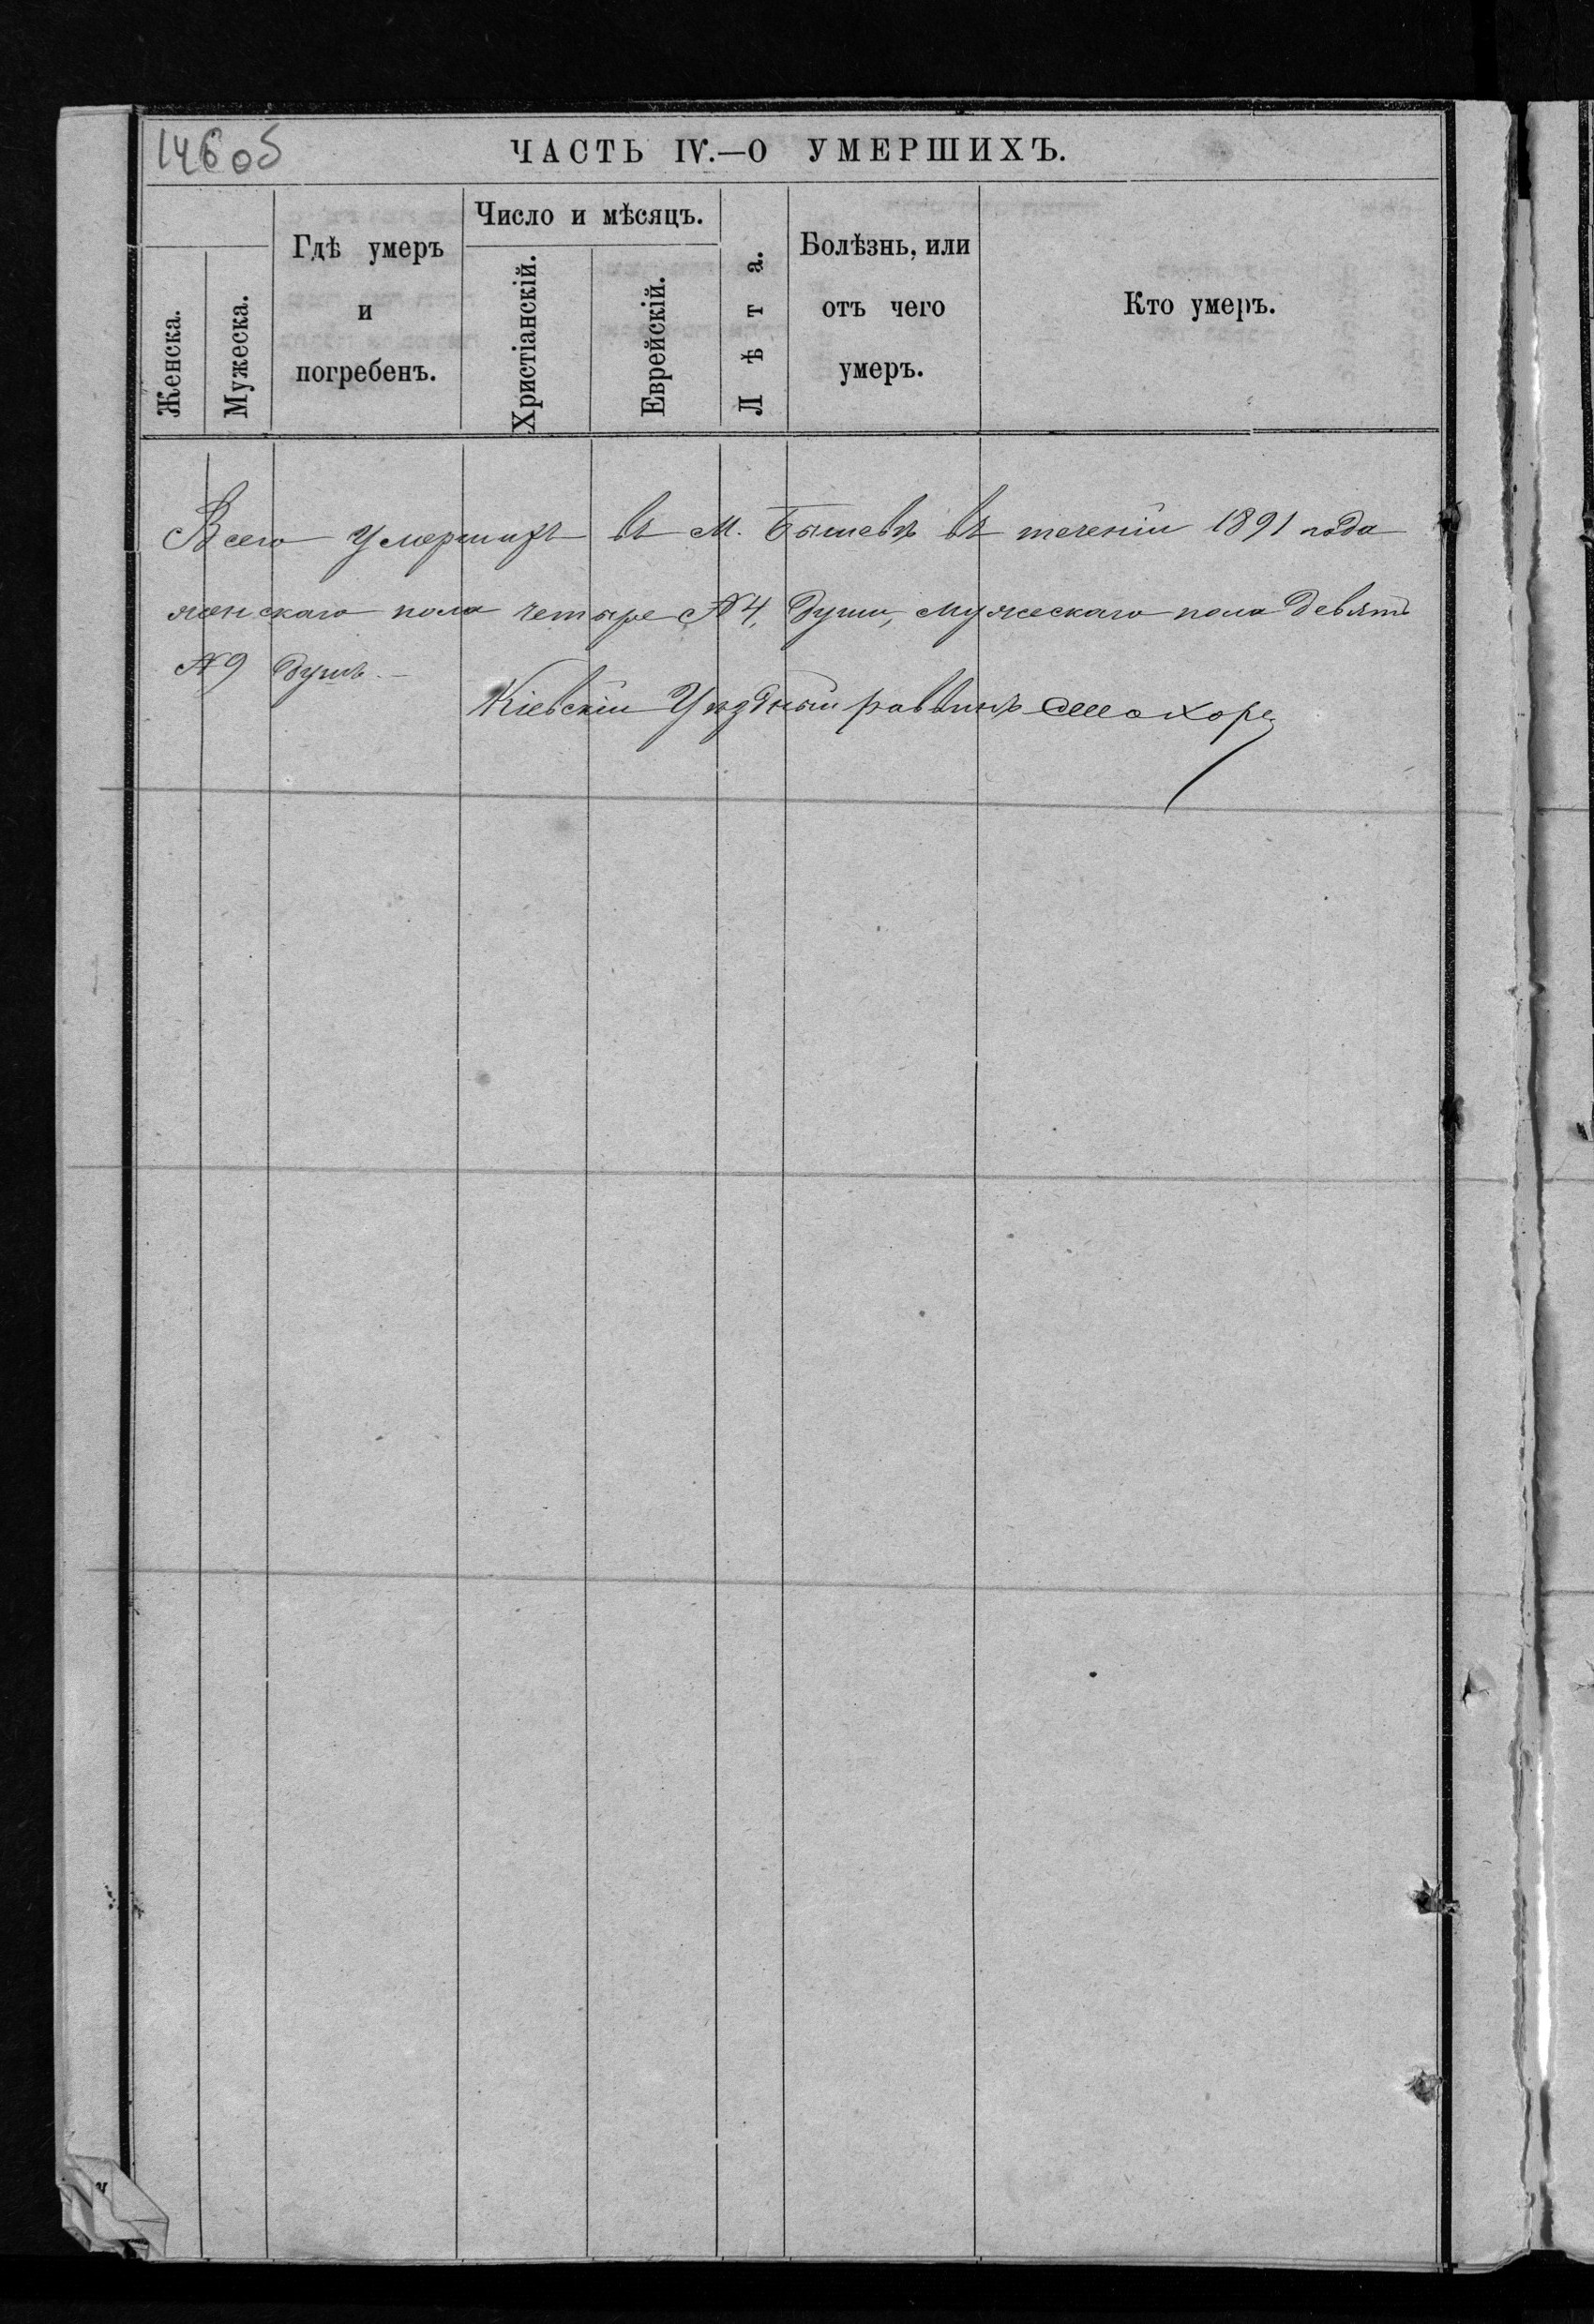 146об
ЧАСТЬ IV.—О УМЕРШИХЪ.
Женска.
Мужеска.
Гдѣ умеръ
и
погребенъ.
Число и мѣсяцъ.
Христіанскій.
Еврейскій.
Лѣта.
Болѣзнь, или
отъ чего
умеръ.
Кто умеръ.
Всего умершихъ въ М. Бышевѣ въ теченіи 1891 года
женскаго пола четыре №4, души, мужескаго пола девять
№9 душъ.—
Кіевскій Уѣздный раввинъ